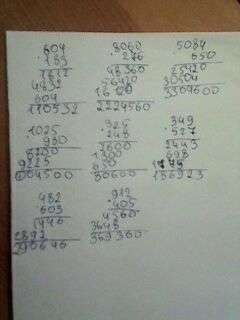 604
·183
1812
4832
604
110532
8060
·276
48360
56420
16120
2224560
5084
650
25420
30504
3304600
1025
980
8200
9225
1004500
325
·248
2600
1300
650
80600
349
·527
2443
698
1745
183923
482
603
1446
2892
290646
912
·405
4560
3648
369360